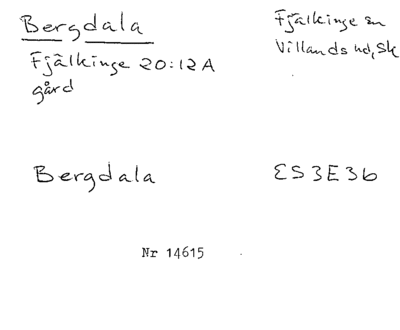 Bergdala
Fjälkinge sn
Villands hd, Sk
Fjälkinge 20:12A
gård
Bergdala
ES3E3b
Nr 14615